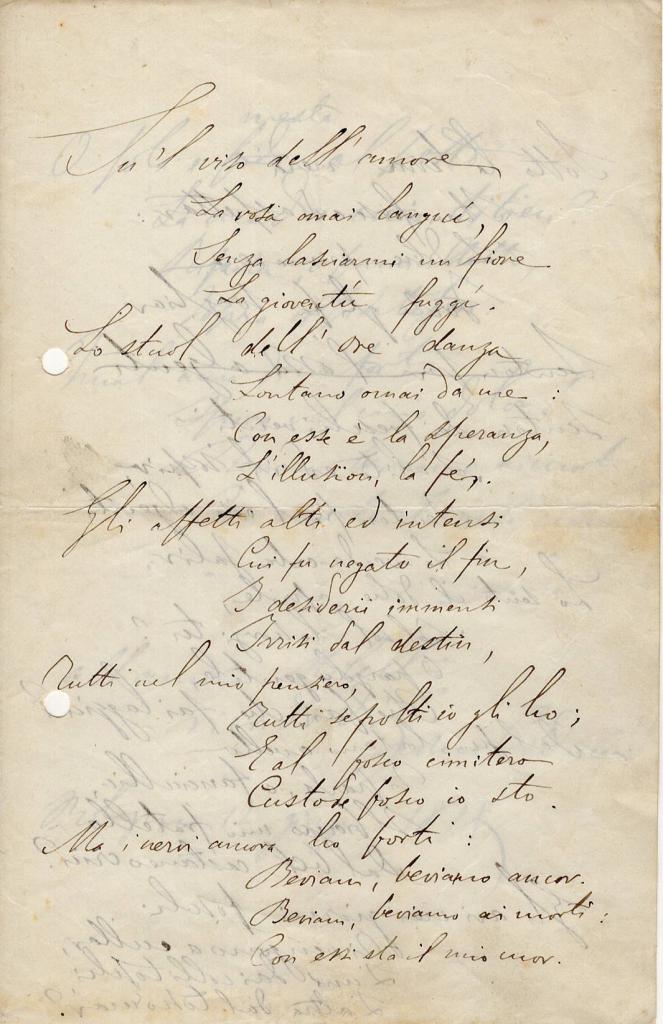 Su 'l viso dell' amore
La rosa omai languì,
Senza lasciarmi un fiore
La gioventù fuggì.
Lo stuol dell' ore danza
Lontano omai da me :
Con esse è la speranza,
L'illusïon, la fé.
Gli affetti alti ed intensi
Cui fu negato il fin,
I desiderii immensi
Irrisi dal destin,
Tutti nel mio pensiero,
Tutti sepolti io gli ho ;
E al fosco cimitero
Custode fosco io sto.
Ma i nervi ancora ho forti :
Beviam, beviamo ancor.
Beviam, beviamo ai morti :
Con essi sta il mio cuor.